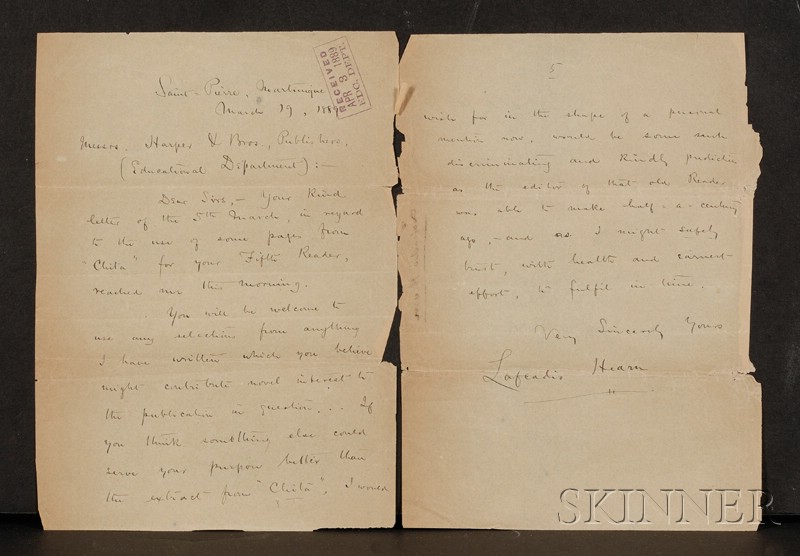 Saint-Pierre, Martinique
March 19, 1889
RECEIVED
APR 3 1889
EDC. DEPT.
Messrs. Harper & Bros., Publishers.
(Educational Department) :—
Dear Sirs, — Your kind
letter of the 5th March, in regard
to the use of some pages from
"Chita" for your Fifth Reader,
reached me this morning.
You will be welcome to
use any selection from anything
I have written which you believe
might contribute novel interest to
the publication in question... If
you think something else could
serve your purpose better than
the extract from "Chita", I would
5
wish for in the shape of a personal
mention now, would be some such
discriminating and kindly prediction
as the editor of that old Reader
was able to make half-a-century
ago, — and as I might safely
trust, with health and earnest
effort, to fulfil in time.
Very Sincerely Yours
Lafcadio Hearn
SKINNER